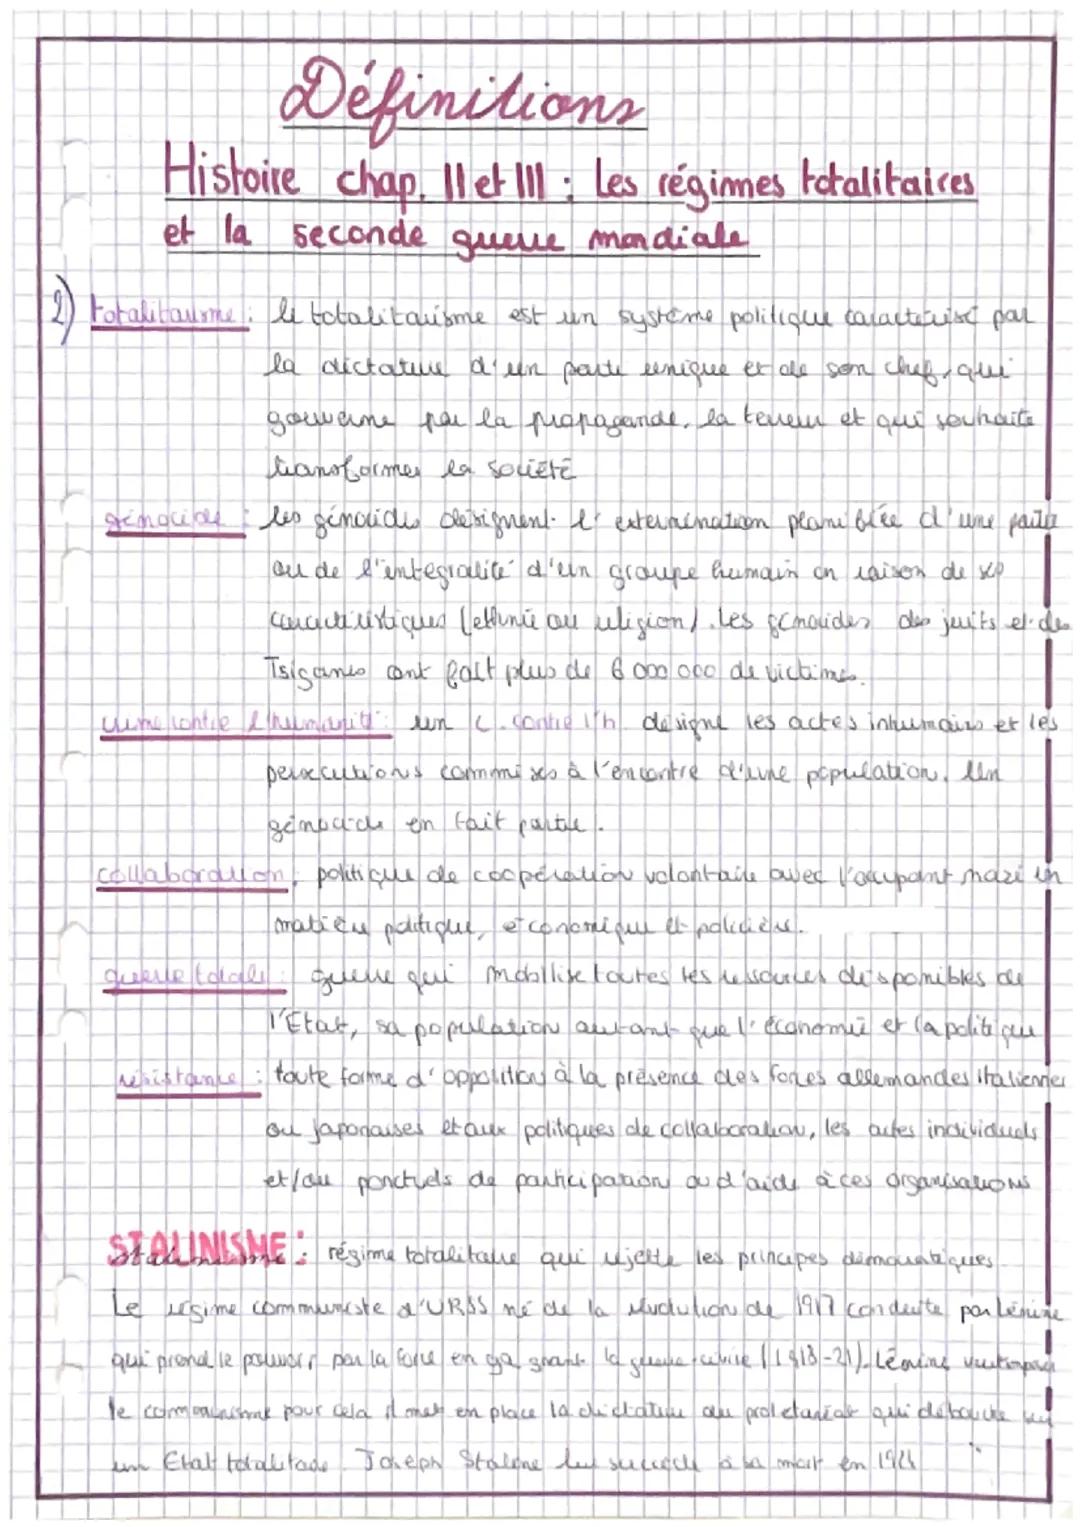 Définitions
Histoire chap. II et III : Les régimes totalitaires
et la seconde guerre mondiale
2) totalitarisme : le totalitarisme est un système politique caractérisé par
la dictature d'un parti unique et de son chef, qui
gouverne par la propagande, la terreur et qui souhaite
transformer la société
génocide : les génocides désignent l'extermination planifiée d'une partie
ou de l'intégralité d'un groupe humain en raison de ses
caractéristiques (ethnie ou religion). Les génocides des juifs et des
Tsiganes ont fait plus de 6 000 000 de victimes.
crime contre l'humanité : un c. contre l'h désigne les actes inhumains et les
persécutions commises à l'encontre d'une population. Un
génocide en fait partie.
collaboration : politique de coopération volontaire avec l'occupant nazi en
matière politique, économique et policière.
guerre totale : guerre qui mobilise toutes les ressources disponibles de
l'Etat, sa population autant que l'économie et la politique
résistance : toute forme d'opposition à la présence des forces allemandes italiennes
ou japonaises et aux politiques de collaboration, les actes individuels
et/ou ponctuels de participation ou d'aide à ces organisations
STALINISME : régime totalitaire qui rejette les principes démocratiques
Le régime communiste d'URSS né de la révolution de 1917 conduite par Lénine
qui prend le pouvoir par la force en gagnant la guerre civile (1918-21). Lénine veut imposer
le communisme pour cela il met en place la dictature du prolétariat qui débouche sur
un Etat totalitaire Joseph Staline lui succède à sa mort en 1924